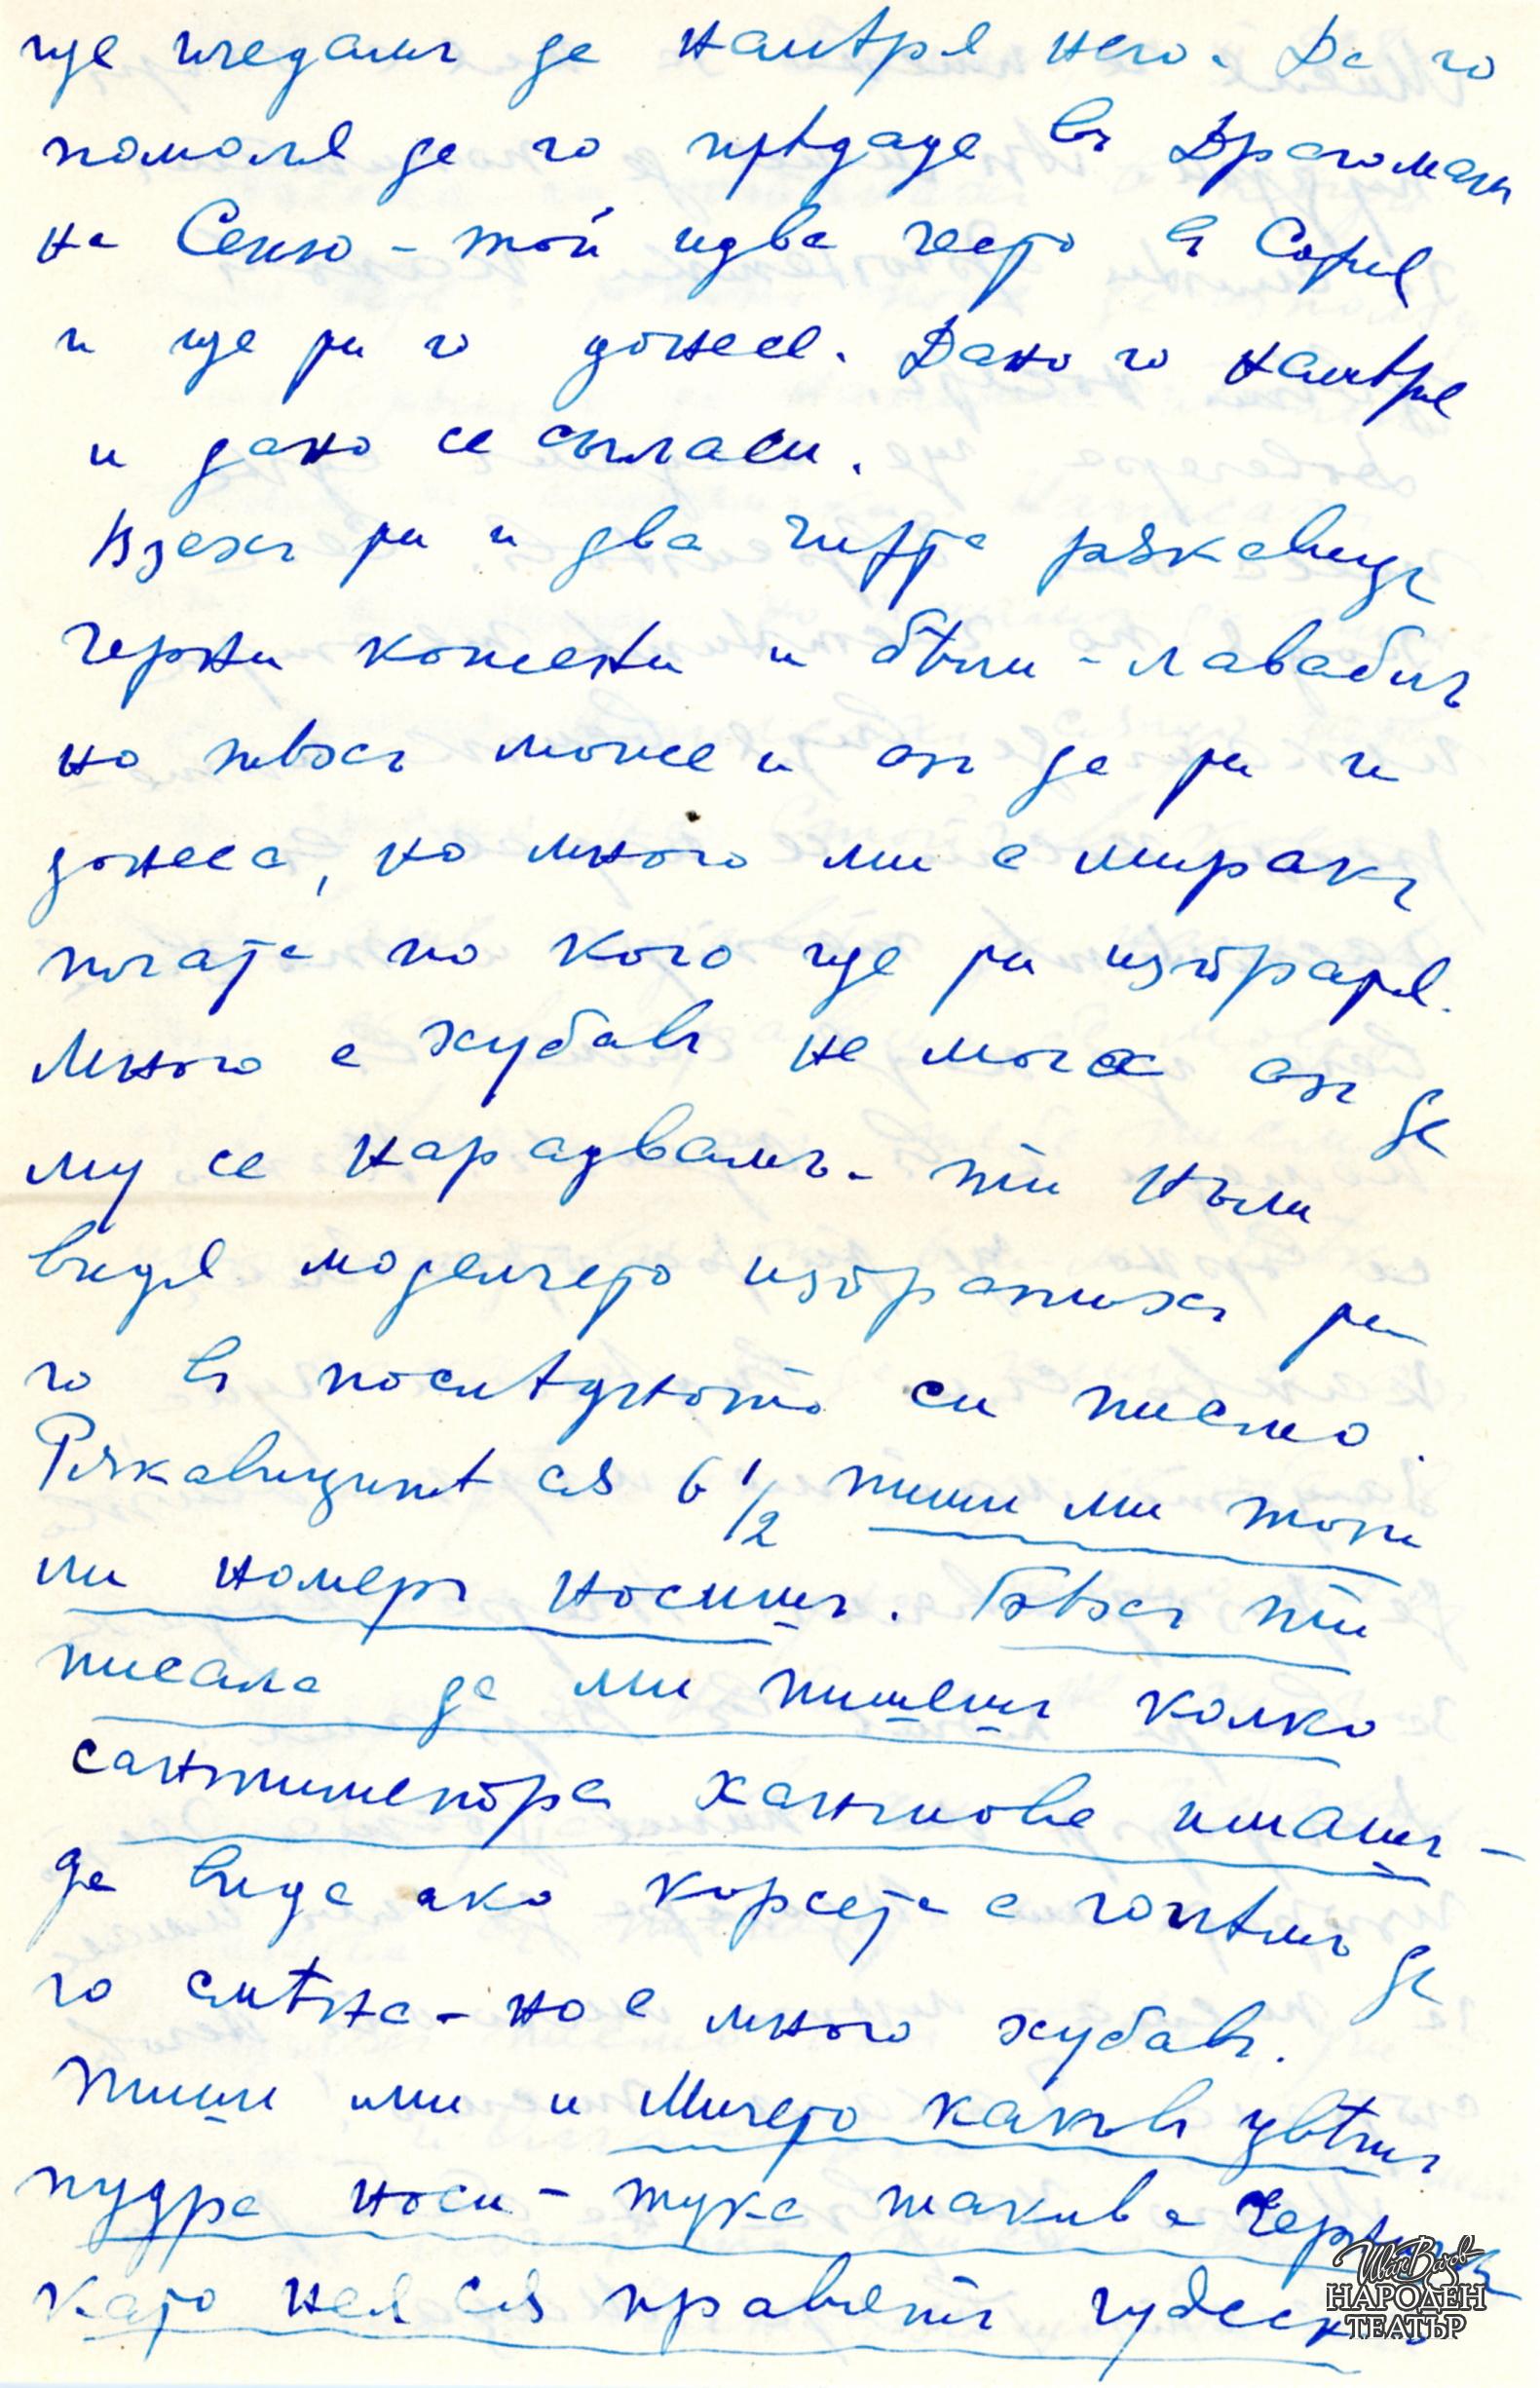 ще гледамъ да намѣря него. Да го
помоля да го прѣдаде въ Драгоманъ
на Сеню - той идва често въ София
и ще ти го донесе. Дано го намѣря
и дано се съгласи.
Взехъ ти и два чифта рѫкавици
черни кожени и бѣли - лавабль
но тѣхъ може и азъ да ти ги
донеса, но много ми е меракъ
по кого ще ти изпратя.
Много е хубавъ не мога азъ да
му се нарадвамъ - ти нали
видя моделчето изпратихъ ти
го въ послѣдното си писмо.
Рѫкавицитѣ сѫ 6 1/2 пиши ми този
ли номеръ носишъ. Бѣхъ ти
писала да ми пишешъ колко
сантиметра ханшове имашъ -
да видя ако корсета е голѣмъ да
го смѣня - но е много хубавъ.
Пиши ми и Мичето какъвъ цвѣтъ
пудра носи - тука такива черни
като нея сѫ правятъ чудесни
Иван Вазов
НАРОДЕН
ТЕАТЪР